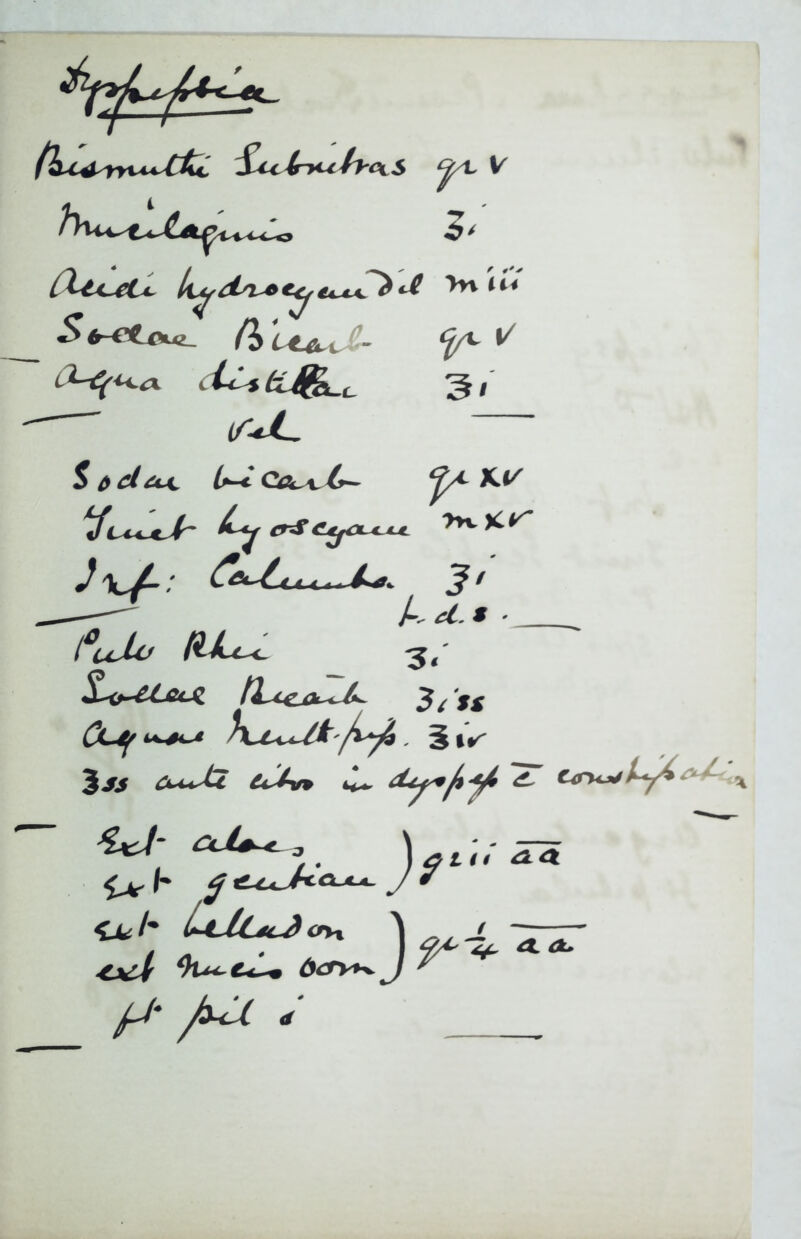 Dyspepsia
Bismuthi Subnitras gr v
Mucilaginis ʒi
Acidi hydrocyan dil ♏iii
Sodae Bicarb gr v
Aqua distillae ℥i
vel
Sodae bicarb gr xv
Tinct hyoscyam ♏xv
Inf: Calumba ℥i
t.d.s.
Pulv Rhei ʒi
Sodae Bicarb ʒiss
Aquae Menth-pip. ℥iv
℥ss ante cibos in dyspep c̄ constipation
Ext aloes ) gr ii āā
Ext gentian
Ext belladon ) gr ¼ āā
ext Nucis Vom
ft pil i